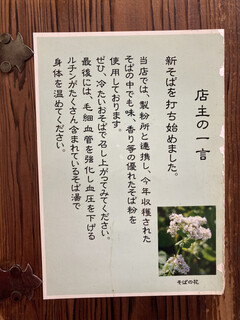 店主の一言
新そばを打ち始めました。
当店では、製粉所と連携し、今年収穫された
そばの中でも味、香り等の優れたそば粉を
使用しております。
ぜひ、冷たいおそばで召し上がってみてください。
最後には、毛細血管を強化し血圧を下げる
ルチンがたくさん含まれているそば湯で
身体を温めてください。
そばの花